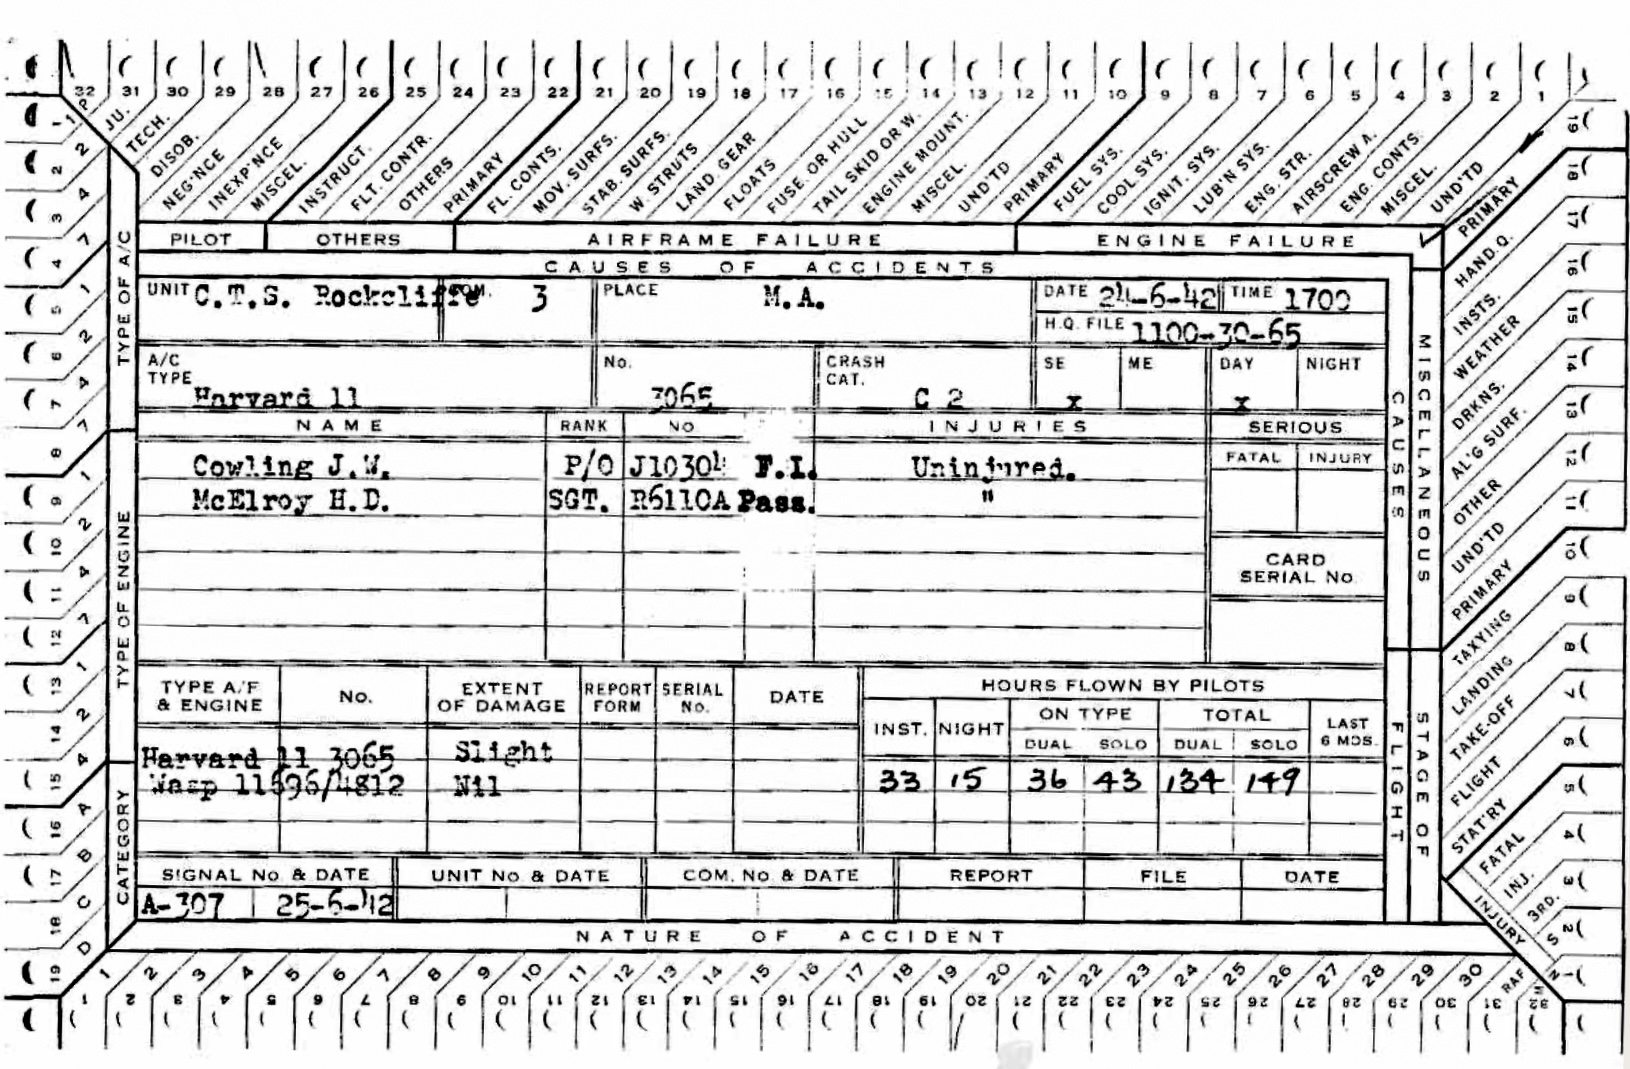 32 31 30 29 28 27 26 25 24 23 22 21 20 19 18 17 16 15 14 13 12 11 10 9 8 7 6 5 4 3 2 1
JU. TECH. DISOB. NEG'NCE INEXP'NCE MISCEL. INSTRUCT. FLT. CONTR. OTHERS PRIMARY FL. CONTS. MOV. SURFS. STAB. SURFS. W. STRUTS LAND. GEAR FLOATS FUSE. OR HULL TAIL SKID OR W. ENGINE MOUNT. MISCEL. UND'TD PRIMARY FUEL SYS. COOL SYS. IGNIT. SYS. LUB'N SYS. ENG. STR. AIRSCREW A. ENG. CONTS. MISCEL. UND'TD PRIMARY
PILOT OTHERS AIRFRAME FAILURE ENGINE FAILURE
CAUSES OF ACCIDENTS
UNIT C.T.S. Rockcliffe COM. 3 PLACE M.A. DATE 24-6-42 TIME 1700
H.Q. FILE 1100-30-65
A/C TYPE Harvard 11 No. 3065 CRASH CAT. C 2 SE x ME DAY x NIGHT
NAME RANK NO INJURIES SERIOUS
FATAL INJURY
Cowling J.W. P/O J10304 F.I. Uninjured.
McElroy H.D. SGT. R6110A Pass. "
CARD
SERIAL No
TYPE A/F & ENGINE No. EXTENT OF DAMAGE REPORT FORM SERIAL No. DATE HOURS FLOWN BY PILOTS
INST. NIGHT ON TYPE TOTAL LAST 6 MOS.
DUAL SOLO DUAL SOLO
Harvard 11 3065 Slight
Wasp 11596/4812 Nil 33 15 36 43 134 149
SIGNAL No. & DATE UNIT No. & DATE COM. No. & DATE REPORT FILE DATE
A-307 25-6-42
NATURE OF ACCIDENT
1 2 3 4 5 6 7 8 9 10 11 12 13 14 15 16 17 18 19 20 21 22 23 24 25 26 27 28 29 30 RAF
1 2 3 4 5 6 7 8 9 10 11 12 13 14 15 16 17 18 19 20 21 22 23 24 25 26 27 28 29 30 31 32
TYPE OF A/C
TYPE OF ENGINE
CATEGORY
1 2 3 4 5 6 7 8 9 10 11 12 13 14 15 16 17 18 19
2 4 7 1 2 4 7 1 2 4 7 1 2 4 A B C D
MISCELLANEOUS
CAUSES
STAGE OF
FLIGHT
HAND.Q.
INSTS.
WEATHER
DRKNS.
AL'G SURF.
OTHER
UND'TD
PRIMARY
TAXYING
LANDING
TAKE-OFF
FLIGHT
STAT'RY
FATAL
INJ.
3RD.
INJURY
19 18 17 16 15 14 13 12 11 10 9 8 7 6 5 4 3 2 1